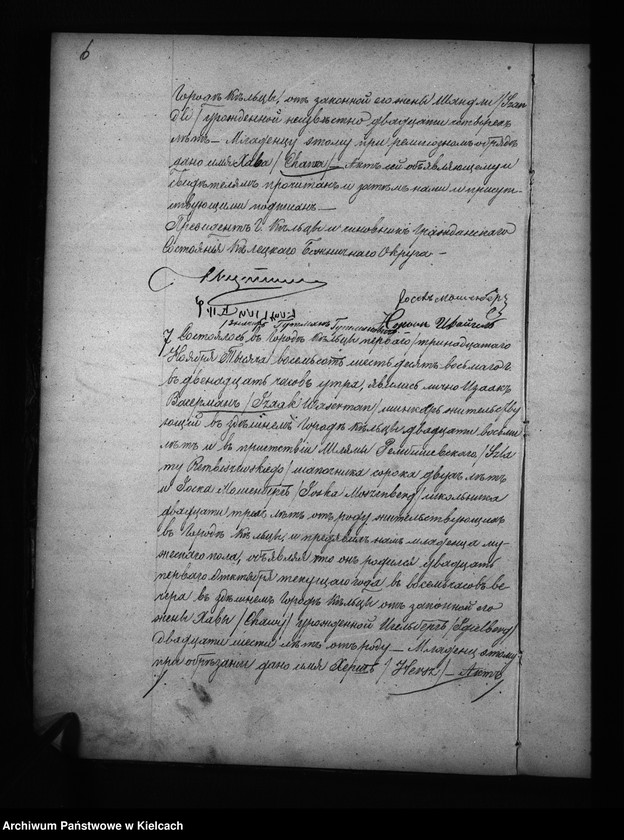 6
Городъ Кѣльцы, отъ законной его жены Шандли /Szan
дли/ урожденной неизвѣстно двадцати четырехъ
лѣтъ — Младенцу этому при религіозномъ обрядѣ
дано имя Хава /Chawa/ — Актъ сей объявляющему и
Свидѣтелямъ прочитанъ и затѣмъ нами и присут-
ствующими подписанъ —
Президентъ Г. Кѣльцы и чиновникъ Гражданскаго
Состоянія Кѣлецкаго Божничнаго Округа —
7 Состоялось въ Городѣ Кѣльцы перваго /тринадцатаго
Ноября Тысяча восемьсотъ шестьдесятъ восьмаго г
въ двенадцать часовъ утра, явились лично Изаакъ
Вассерманъ /Izaak Waserman/ жительству
ющій въ здѣшнемъ Городѣ Кѣльцы двадцати восьми
лѣтъ и въ присутствіи Шлямы /Szla
my шапочника сорока двухъ лѣтъ
и Іоска Мошенберга /Joska Moszenberg/ школьника
двадцати трехъ лѣтъ отъ роду жительствующихъ
въ Городѣ Кѣльцы, и предъявилъ намъ младенца му-
жескаго пола, объявляя что онъ родился двадцать
перваго Октября текущаго года въ восемь часовъ ве-
чера въ здѣшнемъ Городѣ Кѣльцы отъ законной его
жены Хавы /Chawy/ урожденной
двадцати шести лѣтъ отъ роду — Младенцу этому
при обрѣзаніи дано имя Хершъ /Hersk/ — Актъ
Archiwum Państwowe w Kielcach